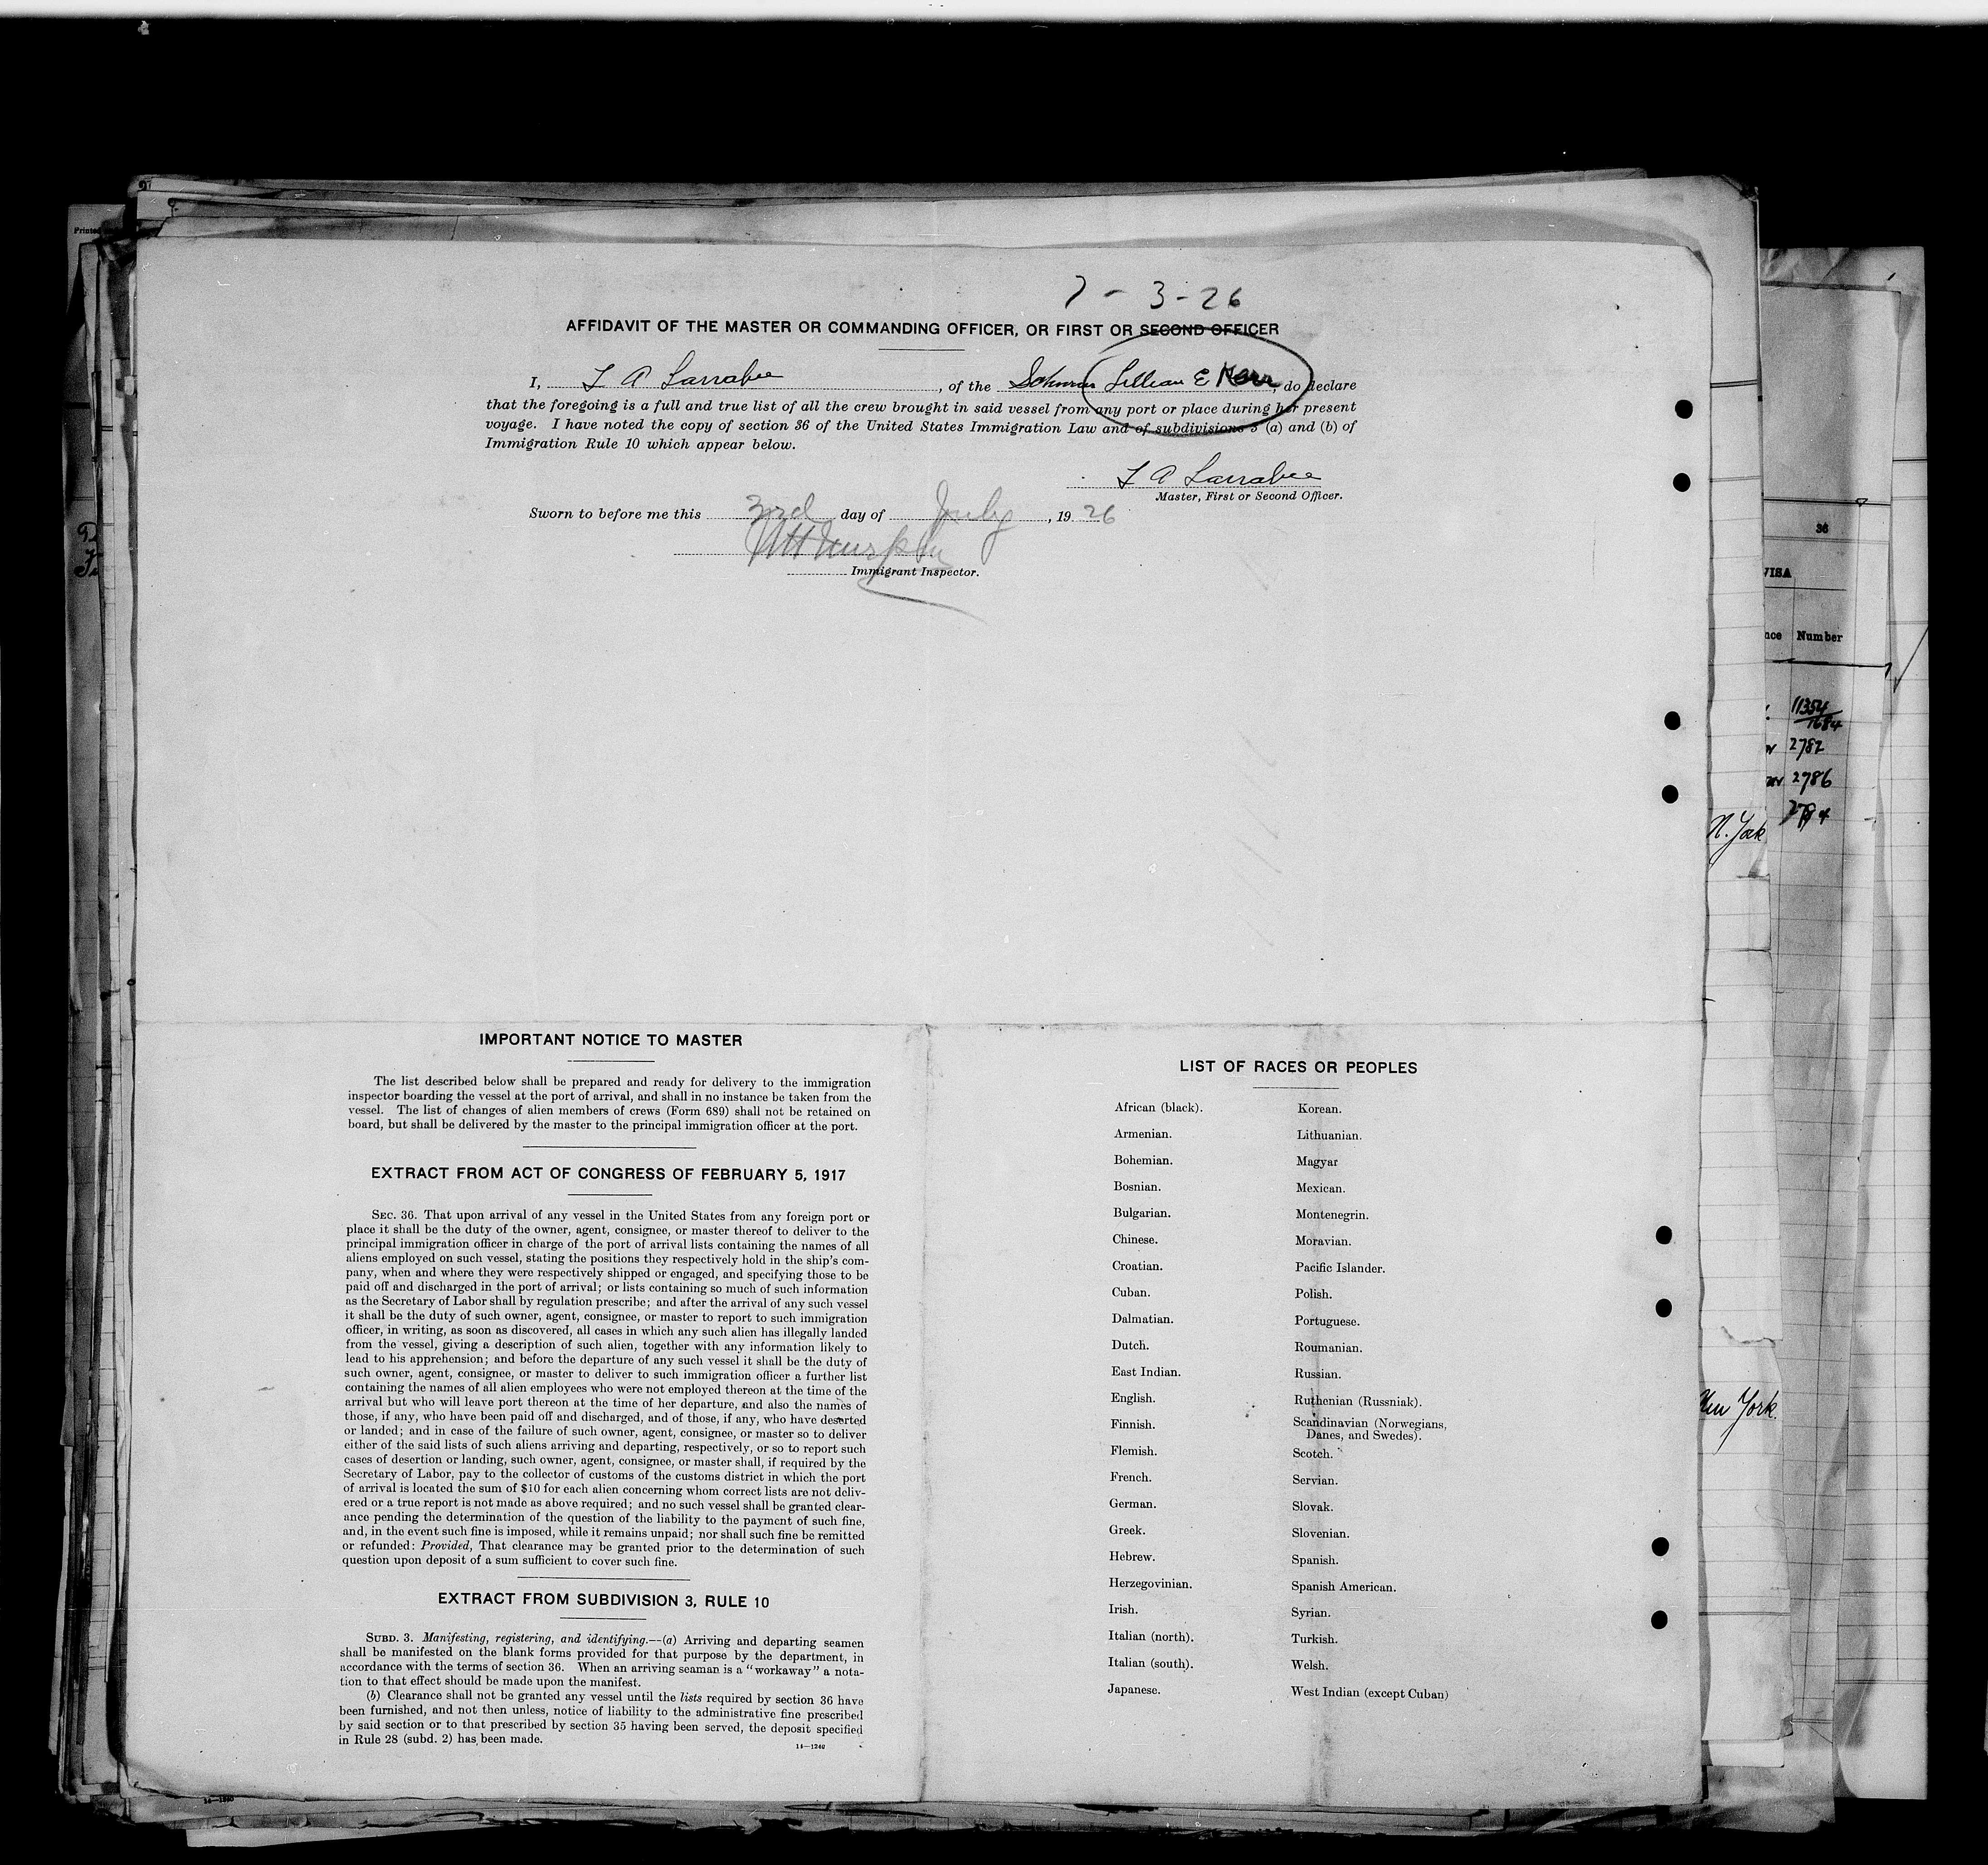 7 - 3 - 26
AFFIDAVIT OF THE MASTER OR COMMANDING OFFICER, OR FIRST OR SECOND OFFICER
I, L A Larrabee, of the Schooner Lillian E Kerr, do declare
that the foregoing is a full and true list of all the crew brought in said vessel from any port or place during her present
voyage. I have noted the copy of section 36 of the United States Immigration Law and of subdivisions 3 (a) and (b) of
Immigration Rule 10 which appear below.
L A Larrabee
Master, First or Second Officer.
Sworn to before me this 3rd day of July, 1926
Immigrant Inspector.
IMPORTANT NOTICE TO MASTER
The list described below shall be prepared and ready for delivery to the immigration
inspector boarding the vessel at the port of arrival, and shall in no instance be taken from the
vessel. The list of changes of alien members of crews (Form 689) shall not be retained on
board, but shall be delivered by the master to the principal immigration officer at the port.
EXTRACT FROM ACT OF CONGRESS OF FEBRUARY 5, 1917
SEC. 36. That upon arrival of any vessel in the United States from any foreign port or
place it shall be the duty of the owner, agent, consignee, or master thereof to deliver to the
principal immigration officer in charge of the port of arrival lists containing the names of all
aliens employed on such vessel, stating the positions they respectively hold in the ship's com-
pany, when and where they were respectively shipped or engaged, and specifying those to be
paid off and discharged in the port of arrival; or lists containing so much of such information
as the Secretary of Labor shall by regulation prescribe; and after the arrival of any such vessel
it shall be the duty of such owner, agent, consignee, or master to report to such immigration
officer, in writing, as soon as discovered, all cases in which any such alien has illegally landed
from the vessel, giving a description of such alien, together with any information likely to
lead to his apprehension; and before the departure of any such vessel it shall be the duty of
such owner, agent, consignee, or master to deliver to such immigration officer a further list
containing the names of all alien employees who were not employed thereon at the time of the
arrival but who will leave port thereon at the time of her departure, and also the names of
those, if any, who have been paid off and discharged, and of those, if any, who have deserted
or landed; and in case of the failure of such owner, agent, consignee, or master so to deliver
either of the said lists of such aliens arriving and departing, respectively, or so to report such
cases of desertion or landing, such owner, agent, consignee, or master shall, if required by the
Secretary of Labor, pay to the collector of customs of the customs district in which the port
of arrival is located the sum of $10 for each alien concerning whom correct lists are not deliv-
ered or a true report is not made as above required; and no such vessel shall be granted clear-
ance pending the determination of the question of the liability to the payment of such fine,
and, in the event such fine is imposed, while it remains unpaid; nor shall such fine be remitted
or refunded: Provided, That clearance may be granted prior to the determination of such
question upon deposit of a sum sufficient to cover such fine.
EXTRACT FROM SUBDIVISION 3, RULE 10
SUBD. 3. Manifesting, registering, and identifying.--(a) Arriving and departing seamen
shall be manifested on the blank forms provided for that purpose by the department, in
accordance with the terms of section 36. When an arriving seaman is a "workaway" a nota-
tion to that effect should be made upon the manifest.
(b) Clearance shall not be granted any vessel until the lists required by section 36 have
been furnished, and not then unless, notice of liability to the administrative fine prescribed
by said section or to that prescribed by section 35 having been served, the deposit specified
in Rule 28 (subd. 2) has been made.
14—1240
LIST OF RACES OR PEOPLES
African (black). Korean.
Armenian. Lithuanian.
Bohemian. Magyar
Bosnian. Mexican.
Bulgarian. Montenegrin.
Chinese. Moravian.
Croatian. Pacific Islander.
Cuban. Polish.
Dalmatian. Portuguese.
Dutch. Roumanian.
East Indian. Russian.
English. Ruthenian (Russniak).
Finnish. Scandinavian (Norwegians,
Danes, and Swedes).
Flemish. Scotch.
French. Servian.
German. Slovak.
Greek. Slovenian.
Hebrew. Spanish.
Herzegovinian. Spanish American.
Irish. Syrian.
Italian (north). Turkish.
Italian (south). Welsh.
Japanese. West Indian (except Cuban)
Printed
36
VISA
Number
11354
1684
2782
2786
N. York
New York.